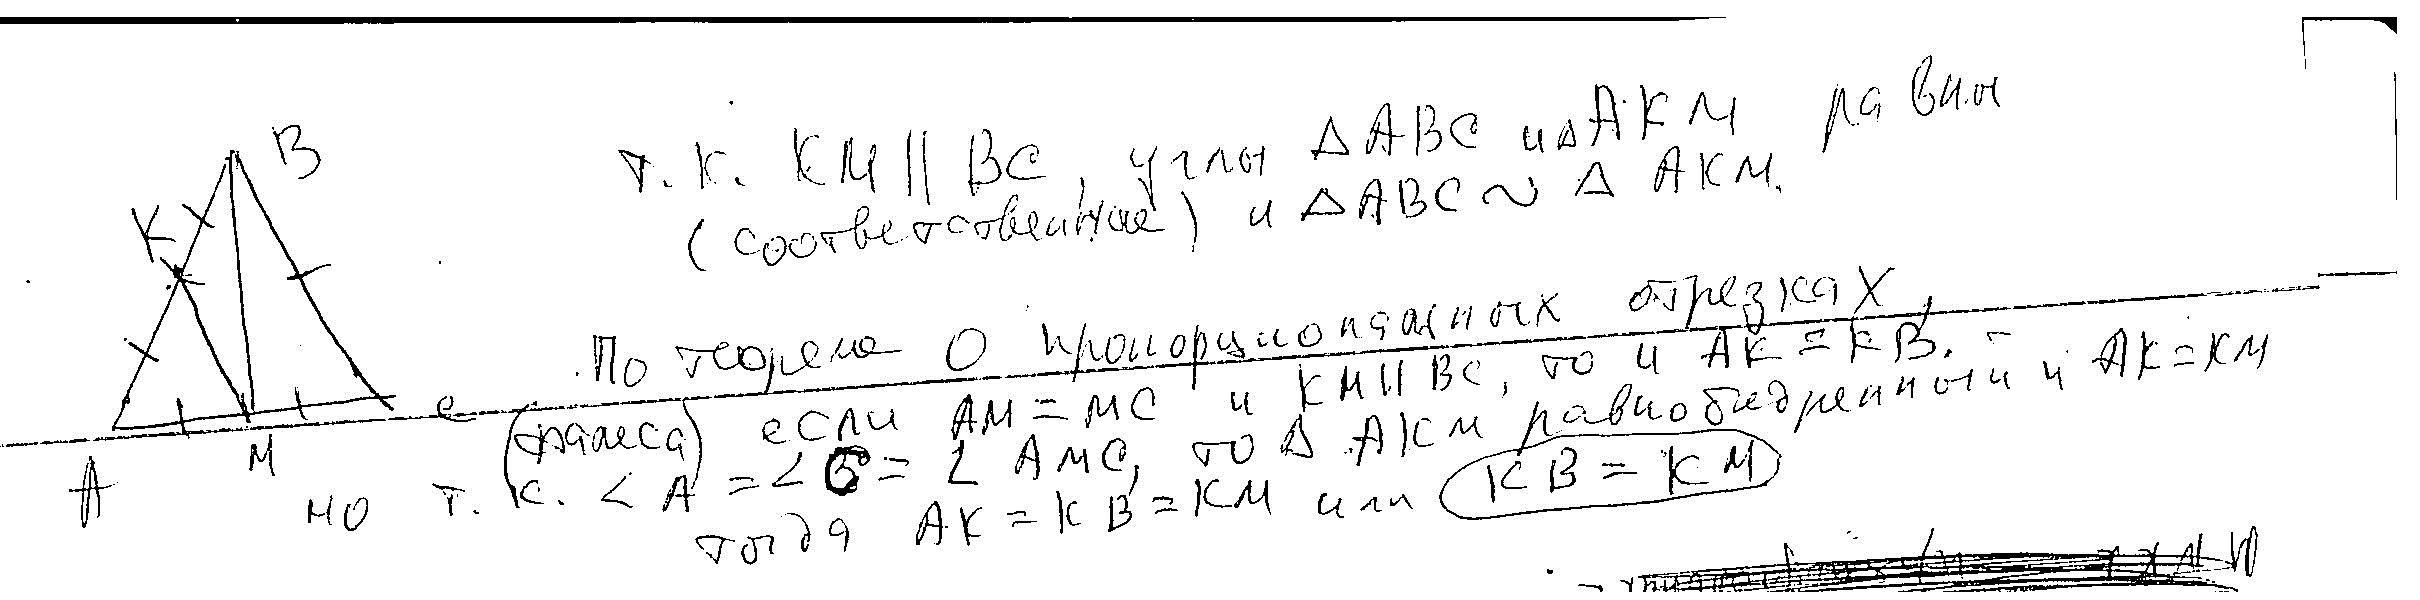 B
K
A
M
C
т.к. KM || BC, углы △ABC и △AKM равны
(соответственные) и △ABC ∼ △AKM.
По теореме о пропорциональных отрезках,
(Фалеса) если AM = MC и KM || BC, то и AK = KB.
но т.к. ∠A = ∠C = ∠AMC, то △AKM равнобедренный и AK = KM
тогда AK = KB = KM или KB = KM